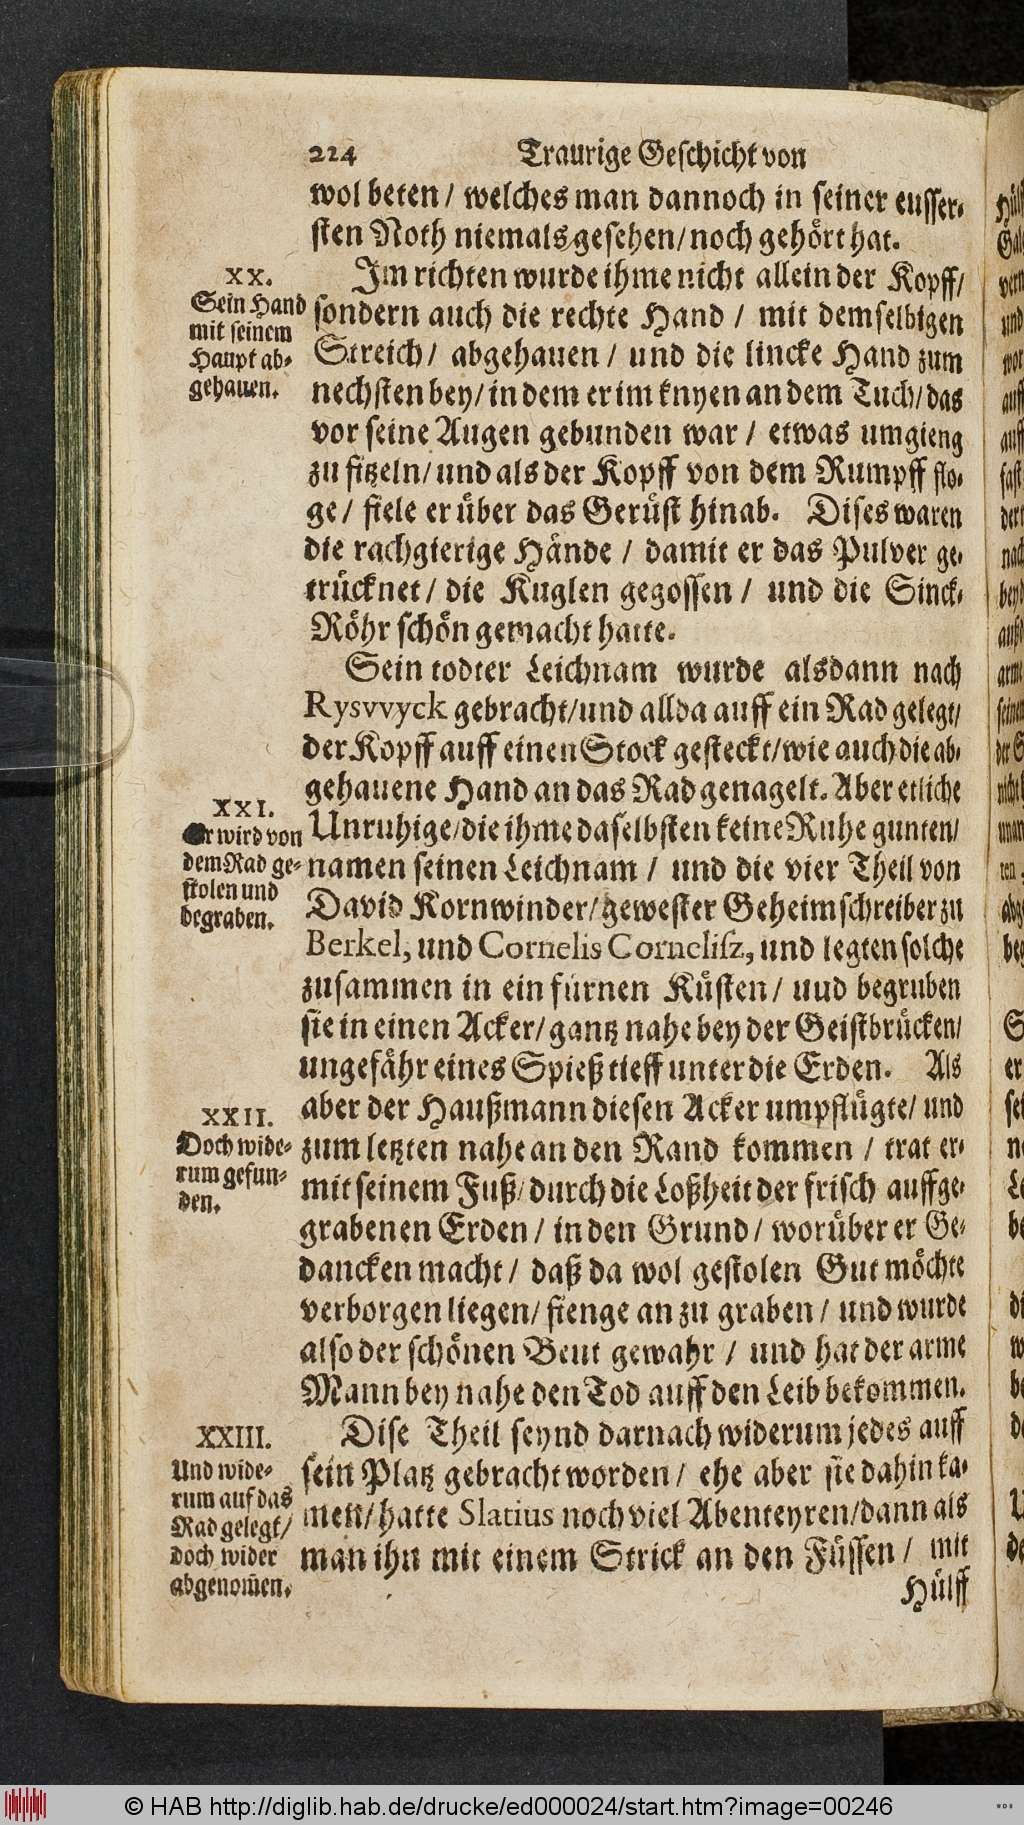 224 Traurige Geschicht von
wol beten / welches man dannoch in seiner eusser-
sten Noth niemals gesehen / noch gehört hat.
XX.
Sein Hand
mit seinem
Haupt ab-
gehauen.
Im richten wurde ihme nicht allein der Kopff /
sondern auch die rechte Hand / mit demselbigen
Streich / abgehauen / und die lincke Hand zum
nechsten bey / in dem er im knyen an dem Tuch / das
vor seine Augen gebunden war / etwas umgieng
zu fitzeln / und als der Kopff von dem Rumpff flo-
ge / fiele er über das Gerüst hinab. Dises waren
die rachgierige Hände / damit er das Pulver ge-
trücknet / die Kuglen gegossen / und die Sinck-
Röhr schön gemacht hatte.
Sein todter Leichnam wurde alsdann nach
Rysvvyck gebracht / und allda auff ein Rad gelegt /
der Kopff auff einen Stock gesteckt / wie auch die ab-
gehauene Hand an das Rad genagelt. Aber etliche
XXI.
Er wird von
dem Rad ge-
stolen und
begraben.
Unruhige / die ihme daselbsten keine Ruhe gunten /
namen seinen Leichnam / und die vier Theil von
David Kornwinder / gewester Geheimschreiber zu
Berkel, und Cornelis Cornelisz, und legten solche
zusammen in ein fürnen Küsten / uud begruben
sie in einen Acker / gantz nahe bey der Geistbrücken /
ungefähr eines Spieß tieff unter die Erden. Als
XXII.
Doch wide-
rum gefun-
den.
aber der Haußmann diesen Acker umpflügte / und
zum letzten nahe an den Rand kommen / trat er-
mit seinem Fuß / durch die Loßheit der frisch auffge-
grabenen Erden / in den Grund / worüber er Ge-
dancken macht / daß da wol gestolen Gut möchte
verborgen liegen / fienge an zu graben / und wurde
also der schönen Beut gewahr / und hat der arme
Mann bey nahe den Tod auff den Leib bekommen.
XXIII.
Und wide-
rum auf das
Rad gelegt /
doch wider
abgenom̃en.
Dise Theil seynd darnach widerum jedes auff
sein Platz gebracht worden / ehe aber sie dahin ka-
men / hatte Slatius noch viel Abenteyren / dann als
man ihn mit einem Strick an den Füssen / mit
Hülff
© HAB http://diglib.hab.de/drucke/ed000024/start.htm?image=00246